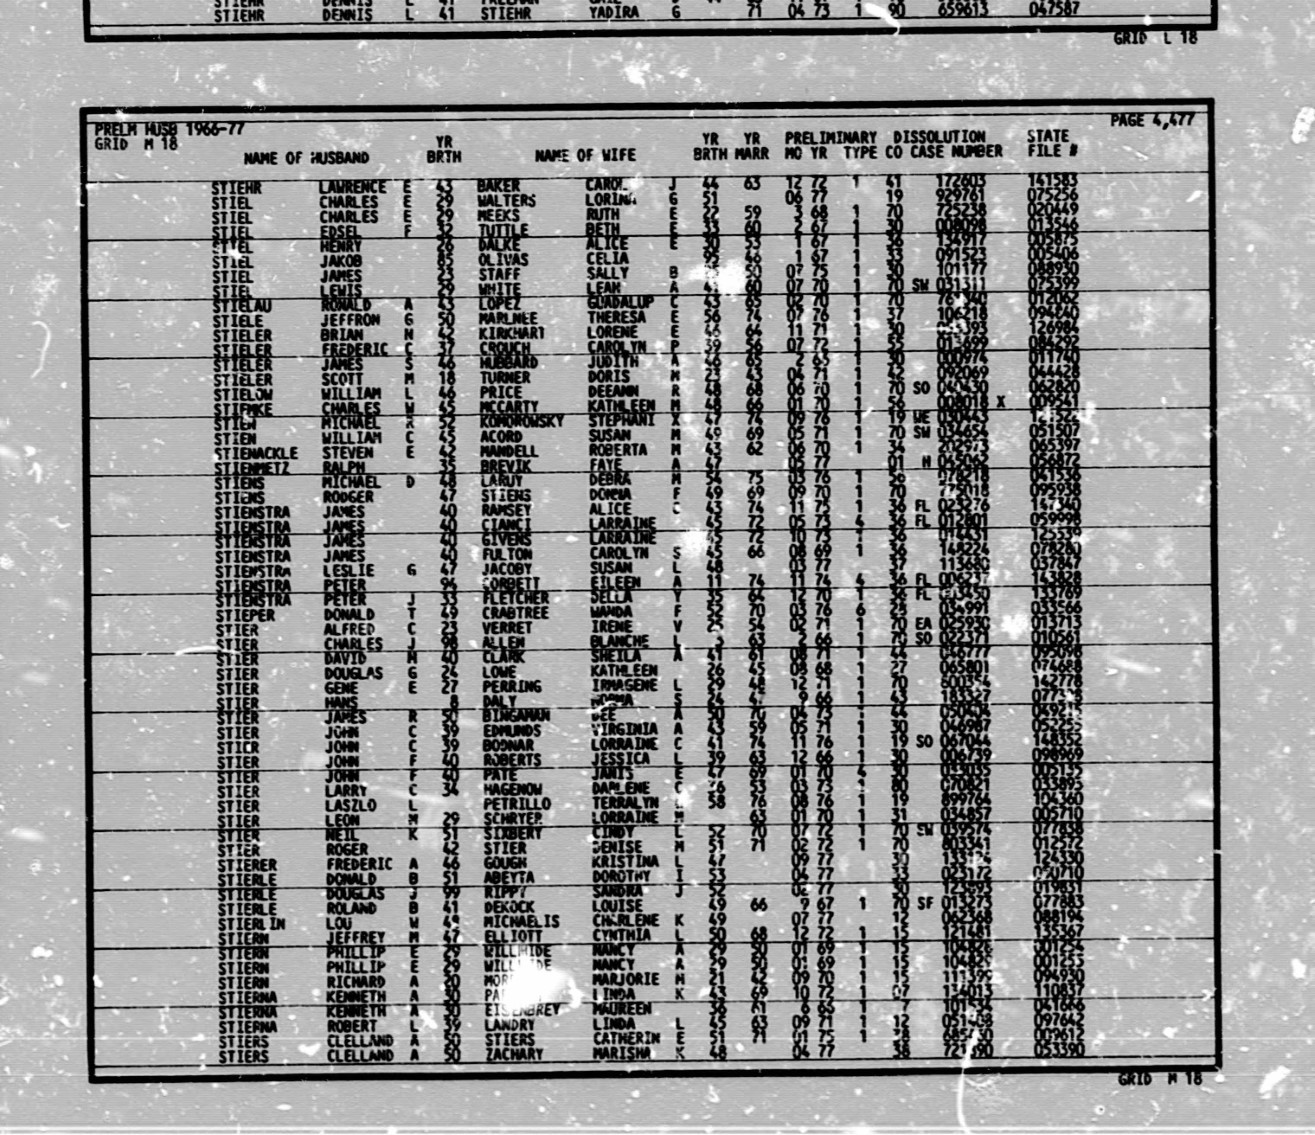 STIEHR DENNIS L 41 STIEHR YADIRA G 71 04 73 1 90 659613 047587
GRID L 18
PRELM HUSB 1966-77 PAGE 4,477
GRID M 18
YR YR YR PRELIMINARY DISSOLUTION STATE
NAME OF HUSBAND BRTH NAME OF WIFE BRTH MARR MO YR TYPE CO CASE NUMBER FILE #
STIEHR LAWRENCE E 43 BAKER CAROL J 44 63 12 72 1 41 172603 141583
STIEL CHARLES E 29 WALTERS LORINA G 51 06 77 19 929761 075256
STIEL CHARLES E 29 MEEKS RUTH E 22 59 3 68 1 70 725238 020449
STIEL EDSEL F 32 TUTTLE BETH E 33 60 2 67 1 30 008098 013546
STIEL HENRY 26 DALKE ALICE E 30 53 1 67 1 36 134917 005875
STIEL JAKOB 85 OLIVAS CELIA 95 46 1 67 1 33 091523 005406
STIEL JAMES 23 STAFF SALLY B 50 07 75 1 30 101177 088930
STIEL LEWIS 29 WHITE LEAH A 60 07 70 1 70 SW 031311 075399
STIELAU RONALD A 43 LOPEZ GUADALUP C 43 65 02 70 1 70 012062
STIELE JEFFRON G 50 MARLNEE THERESA E 56 74 07 76 1 37 106218 094840
STIELER BRIAN N 42 KIRKHART LORENE E 46 64 11 71 1 30 126984
STIELER FREDERIC C 37 CROUCH CAROLYN P 39 56 07 72 1 55 084292
STIELER JAMES S 46 HUBBARD JUDITH A 46 65 2 65 1 30 000974 011740
STIELER SCOTT M 18 TURNER DORIS M 23 43 04 71 1 42 092069 044428
STIELOW WILLIAM L 46 PRICE DEEANN R 48 68 06 70 1 70 SO 040430 062820
STIEMKE CHARLES W 45 MCCARTY KATHLEEN M 48 66 01 70 1 56 008018 X 009541
STIEN MICHAEL R 52 KOMOROWSKY STEPHANI X 47 74 09 76 1 19 WE 030443
STIEN WILLIAM C 45 ACORD SUSAN M 49 69 05 71 1 70 SW 034654 051507
STIENACKLE STEVEN E 42 MANDELL ROBERTA M 43 62 06 70 1 34 202973 065397
STIENMETZ RALPH 35 BREVIK FAYE A 47 05 77 01 H 045062 056872
STIENS MICHAEL D 48 LARUY DEBRA M 54 75 03 76 1 56 078218 041536
STIENS RODGER 47 STIENS DONNA F 49 69 09 70 1 70 095938
STIENSTRA JAMES 40 RAMSEY ALICE C 43 74 11 75 1 36 FL 023276 147340
STIENSTRA JAMES 40 CIANCI LARRAINE 45 72 05 73 4 36 FL 012801 059998
STIENSTRA JAMES 40 GIVENS LARRAINE 45 72 10 73 1 36 014431 125539
STIENSTRA JAMES 40 FULTON CAROLYN S 45 66 08 69 1 36 148224 078280
STIENSTRA LESLIE G 47 JACOBY SUSAN L 48 03 77 37 113680 037847
STIENSTRA PETER 94 CORBETT EILEEN A 11 74 11 74 4 36 FL 006237 143828
STIENSTRA PETER J 33 FLETCHER DELLA Y 35 64 12 70 1 36 FL 133769
STIEPER DONALD T 49 CRABTREE WANDA F 52 70 03 76 6 23 034991 033566
STIER ALFRED C 23 VERRET IRENE V 54 02 71 1 70 EA 025930 013713
STIER CHARLES J 98 ALLEN BLANCHE L 63 2 66 1 70 SO 022371 010561
STIER DAVID M 40 CLARK SHEILA A 41 61 08 71 1 44 046777 095098
STIER DOUGLAS G 24 LOWE KATHLEEN 26 45 08 68 1 27 065801 074688
STIER GENE E 27 PERRING IRMAGENE L 29 48 12 71 1 70 600354 142778
STIER HANS 8 DALY NORMA S 24 9 66 1 43 183327
STIER JAMES R 50 BINGAMAN DEE A 50 70 04 73 1 44 050404
STIER JOHN C 39 EDMUNDS VIRGINIA A 43 59 05 71 1 30 046987 052255
STIER JOHN C 39 BODNAR LORRAINE C 41 74 11 76 1 19 SO 067044 148352
STIER JOHN F 40 ROBERTS JESSICA L 39 63 12 66 1 30 006739 098969
STIER JOHN F 40 PATE JANIS E 47 69 01 70 4 30 033035 005135
STIER LARRY C 34 HAGENOW DARLENE C 53 03 73 1 80 070821 033895
STIER LASZLO L PETRILLO TERRALYN 58 76 08 76 1 19 899764 104360
STIER LEON M 29 SCHRYER LORRAINE M 63 01 70 1 31 034857 005710
STIER NEIL K 51 SIXBERY CINDY L 52 70 07 72 1 70 SW 039574 077838
STIER ROGER 42 STIER DENISE M 51 71 02 72 1 70 803341 012572
STIERER FREDERIC A 46 GOUGH KRISTINA L 47 09 77 30 124330
STIERLE DONALD B 51 ABEYTA DOROTHY I 53 04 77 33 023172
STIERLE DOUGLAS J 99 RIPPY SANDRA J 52 02 77 30 123893 019831
STIERLE ROLAND B 41 DEKOCK LOUISE 49 66 9 67 1 70 SF 013273 077883
STIERLIN LOU W 49 MICHAELIS CHARLENE K 49 07 77 12 062368 088194
STIERN JEFFREY M 47 ELLIOTT CYNTHIA L 50 68 12 72 1 15 121481 135367
STIERN PHILLIP E 29 WILLHIDE NANCY A 29 50 01 69 1 15 104826 001254
STIERN PHILLIP E 29 NANCY A 29 50 01 69 1 15 104826 001253
STIERN RICHARD A 20 MARJORIE M 21 42 09 70 1 15 111399 094930
STIERNA KENNETH A 30 LINDA K 43 69 10 72 1 07 134013 110837
STIERNA KENNETH A 30 MAUREEN 36 61 6 66 1 7 101534
STIERNA ROBERT L 39 LANDRY LINDA L 45 63 09 71 1 12 097642
STIERS CLELLAND A 50 STIERS CATHERIN E 51 71 01 75 1 009612
STIERS CLELLAND A 50 ZACHARY MARISHA K 48 04 77 38 053390
GRID M 18